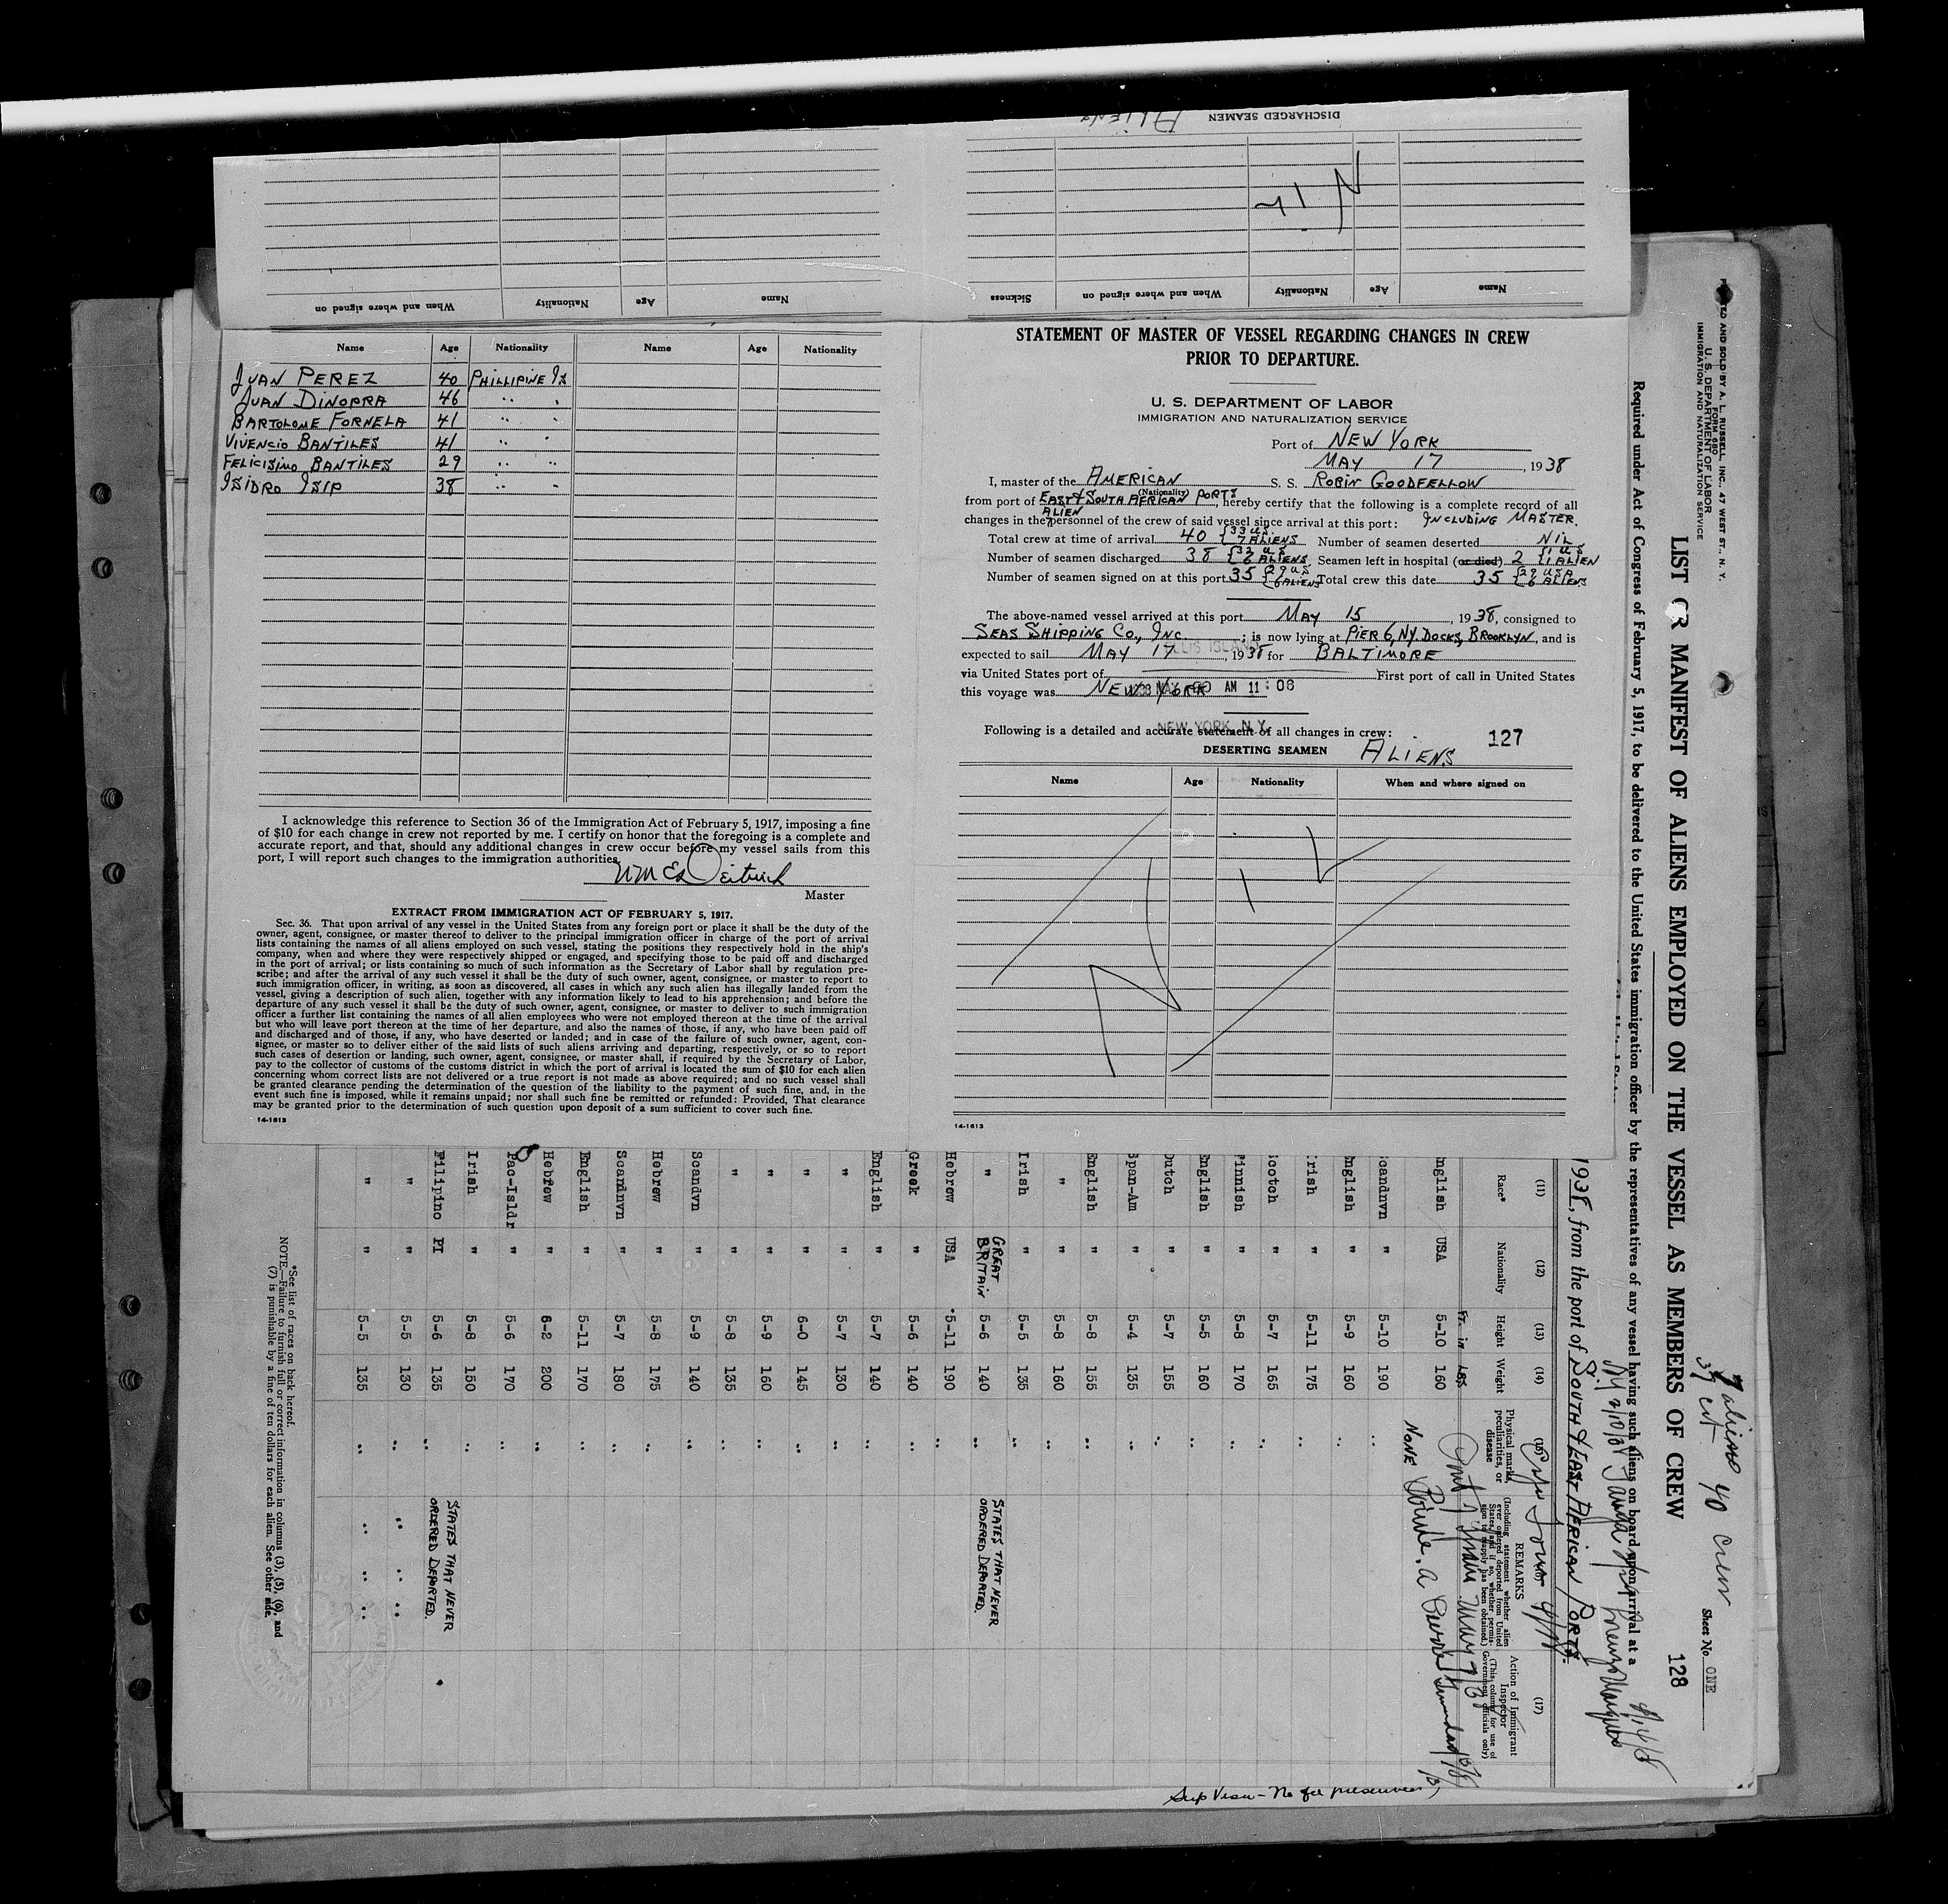 DISCHARGED SEAMEN ALIENS
Name Age Nationality When and where signed on Sickness
Name Age Nationality When and where signed on
Name Age Nationality Name Age Nationality
JUAN PEREZ 40 PHILLIPINE IS
JUAN DINOPRA 46 " "
BARTOLOME FORNELA 41 " "
VIVENCIO BANTILES 41 " "
FELICISIMO BANTILES 29 " "
ISIDRO ISIP 38 " "
I acknowledge this reference to Section 36 of the Immigration Act of February 5, 1917, imposing a fine
of $10 for each change in crew not reported by me. I certify on honor that the foregoing is a complete and
accurate report, and that, should any additional changes in crew occur before my vessel sails from this
port, I will report such changes to the immigration authorities.
Master
EXTRACT FROM IMMIGRATION ACT OF FEBRUARY 5, 1917.
Sec. 36. That upon arrival of any vessel in the United States from any foreign port or place it shall be the duty of the
owner, agent, consignee, or master thereof to deliver to the principal immigration officer in charge of the port of arrival
lists containing the names of all aliens employed on such vessel, stating the positions they respectively hold in the ship's
company, when and where they were respectively shipped or engaged, and specifying those to be paid off and discharged
in the port of arrival; or lists containing so much of such information as the Secretary of Labor shall by regulation pre-
scribe; and after the arrival of any such vessel it shall be the duty of such owner, agent, consignee, or master to report to
such immigration officer, in writing, as soon as discovered, all cases in which any such alien has illegally landed from the
vessel, giving a description of such alien, together with any information likely to lead to his apprehension; and before the
departure of any such vessel it shall be the duty of such owner, agent, consignee, or master to deliver to such immigration
officer a further list containing the names of all alien employees who were not employed thereon at the time of the arrival
but who will leave port thereon at the time of her departure, and also the names of those, if any, who have been paid off
and discharged and of those, if any, who have deserted or landed; and in case of the failure of such owner, agent, con-
signee, or master so to deliver either of the said lists of such aliens arriving and departing, respectively, or so to report
such cases of desertion or landing, such owner, agent, consignee, or master shall, if required by the Secretary of Labor,
pay to the collector of customs of the customs district in which the port of arrival is located the sum of $10 for each alien
concerning whom correct lists are not delivered or a true report is not made as above required; and no such vessel shall
be granted clearance pending the determination of the question of the liability to the payment of such fine, and, in the
event such fine is imposed, while it remains unpaid; nor shall such fine be remitted or refunded: Provided, That clearance
may be granted prior to the determination of such question upon deposit of a sum sufficient to cover such fine.
14-1613
STATEMENT OF MASTER OF VESSEL REGARDING CHANGES IN CREW
PRIOR TO DEPARTURE.
U. S. DEPARTMENT OF LABOR
IMMIGRATION AND NATURALIZATION SERVICE
Port of NEW YORK
MAY 17, 1938
I, master of the AMERICAN S. S. ROBIN GOODFELLOW
(Nationality)
from port of EAST & SOUTH AFRICAN PORTS, hereby certify that the following is a complete record of all
changes in the ALIEN personnel of the crew of said vessel since arrival at this port: INCLUDING MASTER.
Total crew at time of arrival 40 {33 US 7 ALIENS Number of seamen deserted NIL
Number of seamen discharged 38 {32 US 6 ALIENS Seamen left in hospital (or died) 2 {1 US 1 ALIEN
Number of seamen signed on at this port 35 {29 US 6 ALIENS Total crew this date 35 {29 USA 6 ALIENS
The above-named vessel arrived at this port MAY 15, 1938, consigned to
SEAS SHIPPING CO., INC.; is now lying at PIER 6, NY. DOCKS, BROOKLYN, and is
ELLIS ISLAND
expected to sail MAY 17, 1938 for BALTIMORE
via United States port of First port of call in United States
this voyage was NEW YORK
AM 11:08
NEW YORK, N.Y.
Following is a detailed and accurate statement of all changes in crew:
127
DESERTING SEAMEN ALIENS
Name Age Nationality When and where signed on
NIL
14-1613
PRINTED AND SOLD BY A. L. RUSSELL, INC., 47 WEST ST., N. Y.
FORM 680
U. S. DEPARTMENT OF LABOR
IMMIGRATION AND NATURALIZATION SERVICE
7 aliens 40 crew
Sheet No. ONE
LIST OR MANIFEST OF ALIENS EMPLOYED ON THE VESSEL AS MEMBERS OF CREW
128
Required under Act of Congress of February 5, 1917, to be delivered to the United States immigration officer by the representatives of any vessel having such aliens on board upon arrival at a
1938, from the port of SOUTH & EAST AFRICAN PORTS.
(11) (12) (13) (14) (15) (17)
Race* Nationality Height Weight Physical marks, peculiarities, or disease
REMARKS
(Including statement whether alien ever ordered deported from United States, and if so, whether permission to reapply has been obtained.)
Action of Immigrant Inspector
(This column for use of Government officials only)
Ft. in Lbs
English USA 5-10 160 NONE
Scandnvn " 5-10 190 "
English " 5-9 160 "
Irish " 5-11 175 "
Scotch " 5-7 165 "
Finnish " 5-8 170 "
English " 5-5 160 "
Dutch " 5-7 155 "
Span-Am " 5-4 135 "
English " 5-8 155 "
" " 5-8 160 "
Irish " 5-5 135 "
" GREAT BRITAIN 5-6 140 " STATES THAT NEVER ORDERED DEPORTED.
Hebrew USA 5-11 190 "
Greek " 5-6 140 "
English " 5-7 140 "
" " 5-7 130 "
" " 6-0 145 "
" " 5-9 160 "
" " 5-8 135 "
Scandvn " 5-9 140 "
Hebrew " 5-8 175 "
Scandnvn " 5-7 180 "
English " 5-11 170 "
Hebrew " 6-2 200 "
Pac-Isldr " 5-6 170 "
Irish " 5-8 150 "
Filipino PI 5-6 135 " STATES THAT NEVER ORDERED DEPORTED.
" " 5-5 130 " " " "
" " 5-5 135 " " " "
*See list of races on back hereof.
NOTE.—Failure to furnish full or correct information in columns (3), (5), (6), and
(7) is punishable by a fine of ten dollars for each alien. See other side.